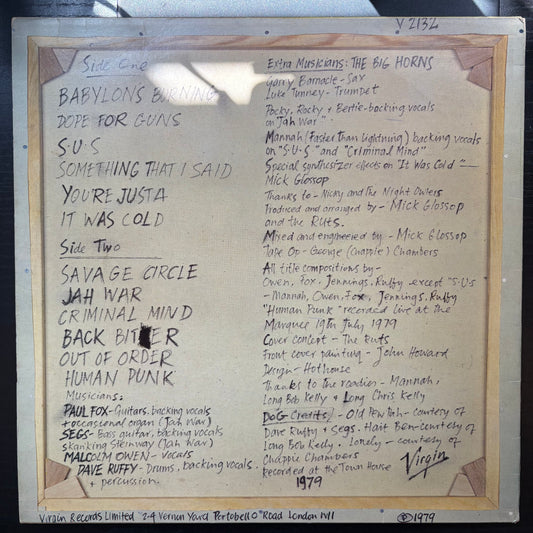 V 2132
Side One
BABYLONS BURNING
DOPE FOR GUNS
S.U.S
SOMETHING THAT I SAID
YOU'RE JUST A
IT WAS COLD
Side Two
SAVAGE CIRCLE
JAH WAR
CRIMINAL MIND
BACK BITER
OUT OF ORDER
HUMAN PUNK
Musicians:
PAUL FOX-Guitars, backing vocals
+ occasional organ (Jah War)
SEGS- Bass guitar, backing vocals
skanking Steinway (Jah War)
MALCOLM OWEN- vocals
DAVE RUFFY- Drums, backing vocals
+ percussion.
Extra Musicians: THE BIG HORNS
Garry Barnacle - Sax
Luke Tunney - Trumpet
Pocky, Rocky + Bertie-backing vocals
on "Jah War".
Mannah (Faster than lightning) backing vocals
on "S.U.S" and "Criminal Mind"
Special synthesizer effects on "It Was Cold" —
Mick Glossop
Thanks to - Nicky and the Night Owers
Produced and arranged by - Mick Glossop
and the Ruts.
Mixed and engineered by - Mick Glossop
Tape Op - George (Chappie) Chambers
All title compositions by -
Owen, Fox, Jennings, Ruffy except "S.U.S
- Mannah, Owen, Fox, Jennings, Ruffy
"Human Punk" recorded live at the
Marquee 19th July, 1979
Cover concept - The Ruts
Front cover painting - John Howard
Design - Hothouse
Thanks to the roadies - Mannah,
Long Bob Kelly + Long Chris Kelly
DOG Credits) - Old Pen Tah - courtesy of
Dave Ruffy + Segs. Hait Ben-courtesy of
Long Bob Kelly. Lonely - courtesy of
Chappie Chambers
Recorded at the Town House
1979
Virgin
Virgin Records Limited 2-4 Vernon Yard Portobello Road London W11
Ⓟ©1979